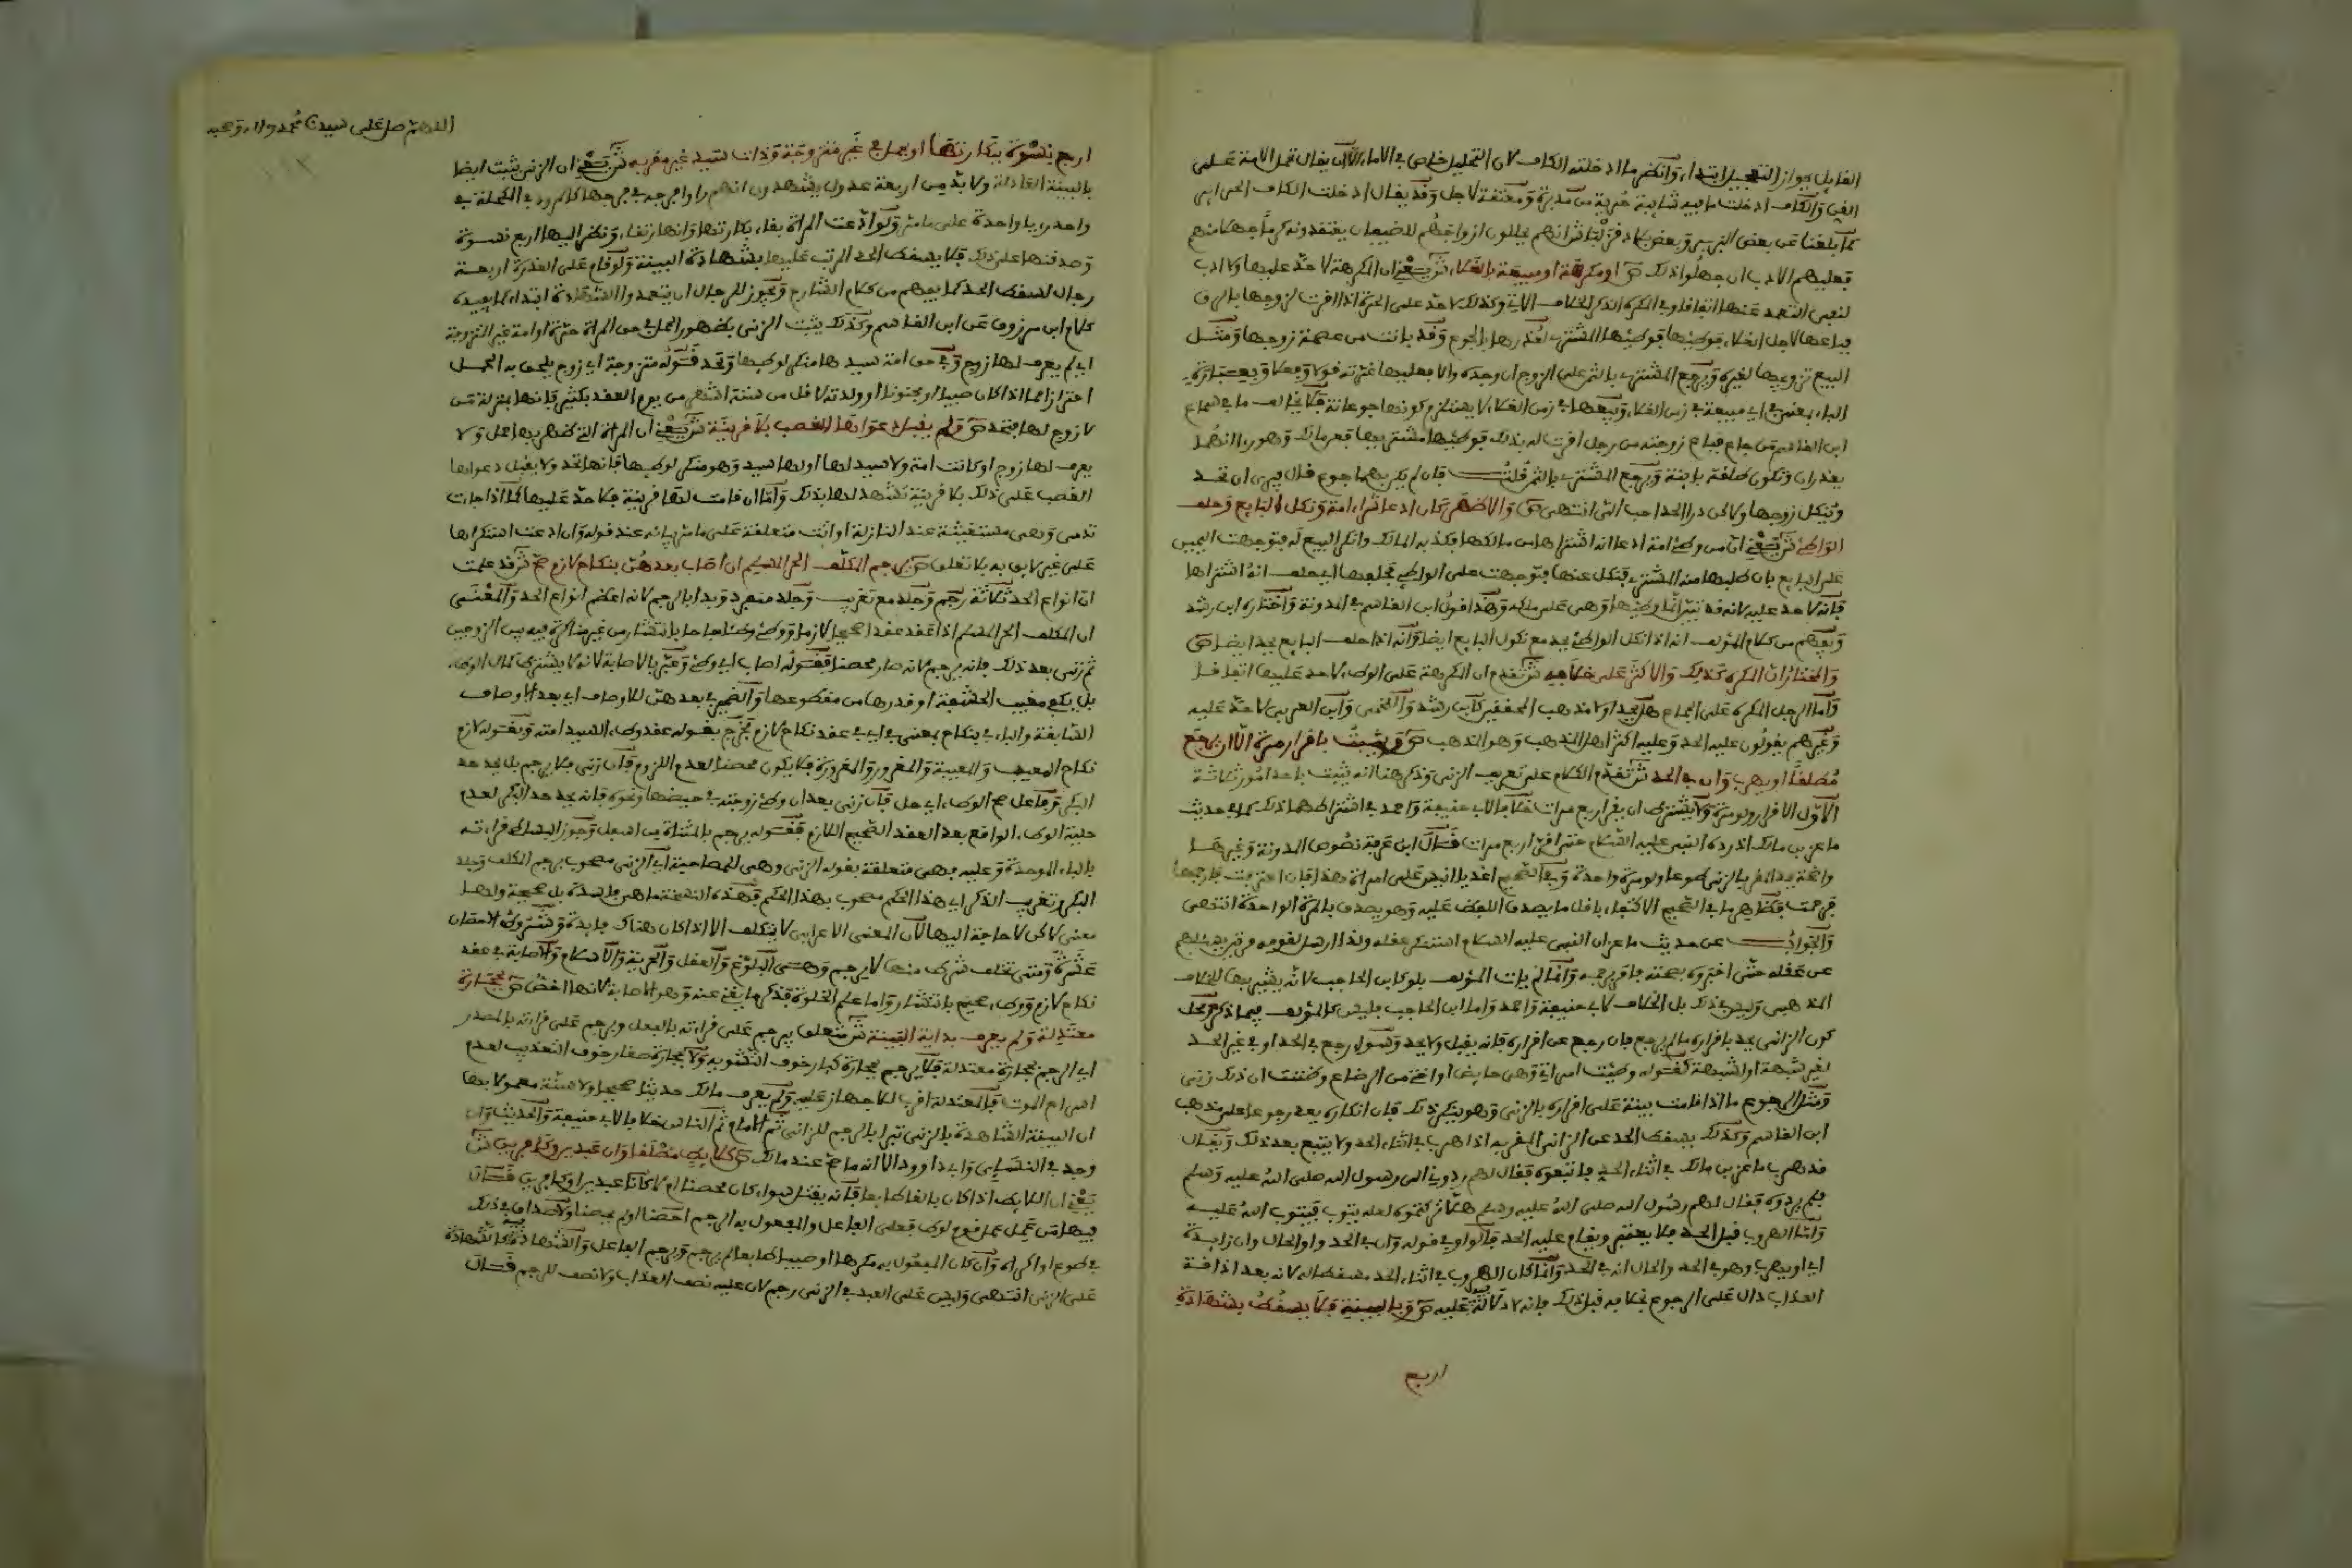 القايل بجواز التحليل ابتداء وانظر ما ادخلته الكاف لان التحليل خاص في الاماء الا ان يقال تحل الامة على
القن والكاف ادخلت ما فيه شائبة حرية من مدبرة ومعتقة لاجل وقد يقال ادخلت الكاف الحراير
كما بلغنا عن بعض البربر وبعض بلاد انهم يحللون ازواجهم للضيفان يعتقدونه كرما جهلا منهم
فعليهم الادب ان جهلوا ذلك ص او مكرهة او مبيعة بالغلاء ش يعني ان المكرهة لا حد عليها ولا ادب
لنفي التعمد عنها اتفاقا وفي المكره الذكر الخلاف الاتي وكذلك لا حد على الحرة اذا اقرت لزوجها بالرق
فباعها لاجل الغلاء فوطئها فوطئها المشتري لعذرها بالجوع وقد بانت من عصمة زوجها ومثل
البيع تزويجها لغيره ويرجع المشتري بالثمن على الزوج ان وجده والا فعليها غرته قولا وفعلا
الباء بمعنى في اي مبيعة في زمن الغلاء وبيعها في زمن الغلاء لا يستلزم كونها جوعانة فلا يخالف ما في سماع
ابن القاسم من جاع فباع زوجته من رجل اقرت له بذلك فوطئها مشتريها فعن مالك وهو
يعذران وتكون طلقة باينة ويرجع المشتري بالثمن قلت فان لم يكن بهما جوع قال يرى ان تحد
وينكل زوجها ولاكن درا الحد احب الي انتهى ص والاظهر كان ادعا شراء امة ونكل البايع وحلف
الواطئ ش يعني ان من وطئ امة ادعا انه اشتراها من مالكها فكذبه المالك وانكر البيع له فتوجهت اليمين
على البايع بان طلبها منه المشتري فنكل عنها فتوجهت على الواطئ فحلفها اي حلف انه اشتراها
فانه لا حد عليه لانه قد تبين انه وطئها وهي على ملكه وهذا قول ابن القاسم في المدونة واختاره ابن رشد
ويفهم من كلام المؤلف انه اذا نكل الواطئ يحد مع نكول البايع ايضا وانه اذا حلف البايع يحد ايضا ص
والمختار ان المكره كذلك والاكثر على خلافه ش تقدم ان المكرهة على الوطء لا حد عليها اتفاقا
واما الرجل المكره على الجماع هل يحد اولا مذهب المحققين كابن رشد واللخمي وابن العربي لا حد عليه
وغيرهم يقولون عليه الحد وعليه اكثر اهل المذهب وهو المذهب ص ويثبت باقرار مرة الا ان يرجع
مطلقا او يهرب وان في الحد ش تقدم الكلام على تعريف الزنى وذكر هنا انه يثبت باحد امور ثلاثة
الاول الاقرار ولو مرة ولا يشترط ان يقر اربع مرات خلافا لابي حنيفة واحمد في اشتراطهما ذلك كما في حديث
ماعز بن مالك اذ رده النبي عليه السلام حتى اقر اربع مرات قال ابن عرفة نصوص المدونة وغيرها
واضحة بحد المقر بالزنى طوعا ولو مرة واحدة وفي الصحيح اغد يا انيس على امراة هذا فان اعترفت فارجمها
فرجمت فظاهر ما في الصحيح الاكتفاء باقل ما يصدق اللفظ عليه وهو يصدق بالمرة الواحدة انتهى
والجواب عن حديث ماعز ان النبي عليه السلام استنكر عقله ولذا ارسل لقومه مرتين يسالهم
عن عقله حتى اخبروه بصحته فامر برجمه وانما لم يات المؤلف بلو كابن الحاجب لانه يشير بها للخلاف
المذهبي وليس في ذلك بل الخلاف لابي حنيفة واحمد واما ابن الحاجب فليس كالمؤلف فيما ذكر ومحل
كون الزاني يحد باقراره ما لم يرجع فان رجع عن اقراره فانه يقبل ولا يحد وسواء رجع في الحد او في غير الحد
لغير شبهة او لشبهة كقوله وطئت امراتي وهي حايض او اختي من الرضاع وظننت ان ذلك زنى
ومثل الرجوع ما اذا قامت بينة على اقراره بالزنى وهو ينكر ذلك فان انكاره يعد رجوعا على مذهب
ابن القاسم وكذلك يسقط الحد عن الزاني المقر به اذا هرب في اثناء الحد ولا يتبع بعد ذلك ويقال
قد هرب ماعز بن مالك في اثناء الحد فاتبعوه فقال لهم ردوني الى رسول الله صلى الله عليه وسلم
فلم يردوه فقال لهم رسول الله صلى الله عليه وسلم هلا تركتموه لعله يتوب فيتوب الله عليه
واما الهروب قبل الحد فلا يعتبر ويقام عليه الحد فالواو في قوله وان في الحد واو الحال وان زايدة
اي او يهرب وهو في الحد والحال انه في الحد وانما كان الهروب في اثناء الحد مسقطا له لانه بعد اذاقة
العذاب دال على الرجوع بخلافه قبل ذلك فانه لا دلالة فيه عليه ص وبالبينة فلا يسقط بشهادة
اربع
اللهم صل على سيدنا محمد واله وصحبه
اربع نسوة ببكارتها او بحمل في غير متزوجة وذات سيد غير مقر به ش يعني ان الزنى يثبت ايضا
بالبينة العادلة ولا بد من اربعة عدول يشهدون انهم راوا فرجه في فرجها كالمرود في المكحلة في
واحد برؤيا واحدة على ما مر ولو ادعت المراة بقاء بكارتها وانها رتقاء ونظر اليها اربع نسوة
وصدقنها على ذلك فلا يسقط الحد المرتب عليها بشهادة البينة ولو قام على العذرة اربعة
رجال لسقط الحد كما يفهم من كلام الشارح ويجوز للرجال ان يتعمدوا الشهادة ابتداء كما يفيده
كلام ابن مرزوق عن ابن القاسم وكذلك يثبت الزنى بظهور الحمل في حق المراة حرة او امة غير المتزوجة
اي لم يعرف لها زوج وفي حق امة سيدها منكر لوطئها وتحد فقوله متزوجة اي زوج يلحق به الحمل
احترازا مما اذا كان صبيا او مجنونا او ولدته لاقل من ستة اشهر من يوم العقد بكثير فانها بمنزلة من
لا زوج لها فتحد ص ولم يقبل دعواها الغصب بلا قرينة ش يعني ان المراة التي ظهر بها حمل ولا
يعرف لها زوج او كانت امة ولا سيد لها او لها سيد وهو منكر لوطئها فانها تحد ولا يقبل دعواها
الغصب على ذلك بلا قرينة تشهد لها بذلك واما ان قامت لها قرينة فلا حد عليها كما اذا جاءت
تدمى وهي مستغيثة عند النازلة او اتت متعلقة على ما مر بيانه عند قوله وان ادعت استكراها
على غير لايق به بلا تعلق ص يرجم المكلف الحر المسلم ان اصاب بعدهن بنكاح لازم صح ش قد علمت
ان انواع الحد ثلاثة رجم وجلد مع تغريب وجلد منفرد وبدا بالرجم لانه اعظم انواع الحد والمعنى
ان المكلف الحر المسلم اذا عقد عقدا صحيحا لازما ووطئ وطئا مباحا بانتشار من غير مناكرة فيه بين الزوجين
ثم زنى بعد ذلك فانه يرجم لانه صار محصنا فقوله اصاب اي وطئ وعبر بالاصابة لانه لا يشترط كمال الوطء
بل يكفي مغيب الحشفة او قدرها من مقطوعها والضمير في بعدهن للاوصاف اي بعد الاوصاف
السابقة والباء في بنكاح بمعنى في اي في عقد نكاح لازم فخرج بقوله عقد وطء السيد امته وبقوله لازم
نكاح المعيب والمعيبة والمغرور والمغرورة فلا يكون محصنا لعدم اللزوم فان زنى فلا يرجم بل يحد حد
البكر وفاعل صح الوطء اي حل فان زنى بعد ان وطئ زوجته في حيضها ونحوه فانه يحد حد البكر لعدم
حلية الوطء الواقع بعد العقد الصحيح اللازم فقوله يرجم بالمثناة من اسفل وجوز البساطي قراءته
بالباء الموحدة وعليه فهي متعلقة بقوله الزنى وهي للمصاحبة اي الزنى مصحوب برجم المكلف وجلد
البكر وتغريب الذكر اي هذا الحكم مصحوب بهذا الحكم فهذه النسخة ما هي فاسدة بل صحيحة ولها
معنى لاكن لا حاجة اليها لان المعنى الاعرابي لا يتكلف الا اذا كان هناك فايدة وشروط الاحصان
عشرة ومتى تخلف شرط منها لا يرجم وهي البلوغ والعقل والحرية والاسلام والاصابة في عقد
نكاح لازم ووطء صحيح بانتشار واما علم الخلوة فذكر ما يغني عنه وهو الاصابة لانها اخص ص بحجارة
معتدلة ولم يعرف بداية البينة ش متعلق بيرجم على قراءته بالفعل وبرجم على قراءته بالمصدر
اي الرجم بحجارة معتدلة فلا يرجم بحجارة كبار خوف التشويه ولا بحجارة صغار خوف التعذيب لعدم
اسراع الموت فالمعتدلة اقرب للاجهاز عليه ولم يعرف مالك حديثا صحيحا ولا سنة معمولا بها
ان البينة الشاهدة بالزنى تبدا بالرجم للزاني ثم الامام ثم الناس خلافا لابي حنيفة والحديث وان
وجد في النساءي وابي داوود الا انه ما صح عند مالك ص كلايط مطلقا وان عبدين وكافرين ش
يعني ان اللايط اذا كان بالغا طايعا فانه يقتل سواء كان محصنا ام لا كانا عبدين او كافرين قال
فيها من عمل عمل قوم لوط فعلى الفاعل والمفعول به الرجم احصنا او لم يحصنا ولا صداق في ذلك
في طوع او اكراه وان كان المفعول به مكرها او صبيا طايعا لم يرجم ورجم الفاعل والشهادة فيه كالشهادة
على الزنى انتهى وليس على العبد في الزنى رجم لان عليه نصف العذاب ولا نصف للرجم قال